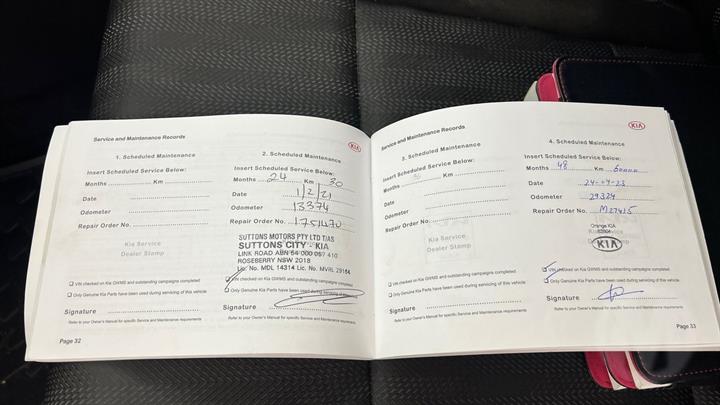 Service and Maintenance Records
KIA
1. Scheduled Maintenance
Insert Scheduled Service Below:
Months Km
Date
Odometer
Repair Order No.
Kia Service
Dealer Stamp
VIN checked on Kia GWMS and outstanding campaigns completed
Only Genuine Kia Parts have been used during servicing of this vehicle
Signature
Refer to your Owner's Manual for specific Service and Maintenance requirements
Page 32
2. Scheduled Maintenance
Insert Scheduled Service Below:
Months 24 Km 30
Date 1/2/21
Odometer 13374
Repair Order No. 1751470
SUTTONS MOTORS PTY LTD T/AS
SUTTONS CITY - KIA
LINK ROAD ABN 54 000 057 410
ROSEBERY NSW 2018
Lic. No. MDL 14314 Lic. No. MVRL 29164
VIN checked on Kia GWMS and outstanding campaigns completed
Only Genuine Kia Parts have been used during servicing of this vehicle
Signature
Refer to your Owner's Manual for specific Service and Maintenance requirements
Service and Maintenance Records
KIA
3. Scheduled Maintenance
Insert Scheduled Service Below:
Months Km
Date
Odometer
Repair Order No.
Kia Service
Dealer Stamp
VIN checked on Kia GWMS and outstanding campaigns completed
Only Genuine Kia Parts have been used during servicing of this vehicle
Signature
Refer to your Owner's Manual for specific Service and Maintenance requirements
4. Scheduled Maintenance
Insert Scheduled Service Below:
Months 48 Km 60000
Date
Odometer 29324
Repair Order No. M27415
Orange KIA
KIA
VIN checked on Kia GWMS and outstanding campaigns completed
Only Genuine Kia Parts have been used during servicing of this vehicle
Signature
Refer to your Owner's Manual for specific Service and Maintenance requirements
Page 33